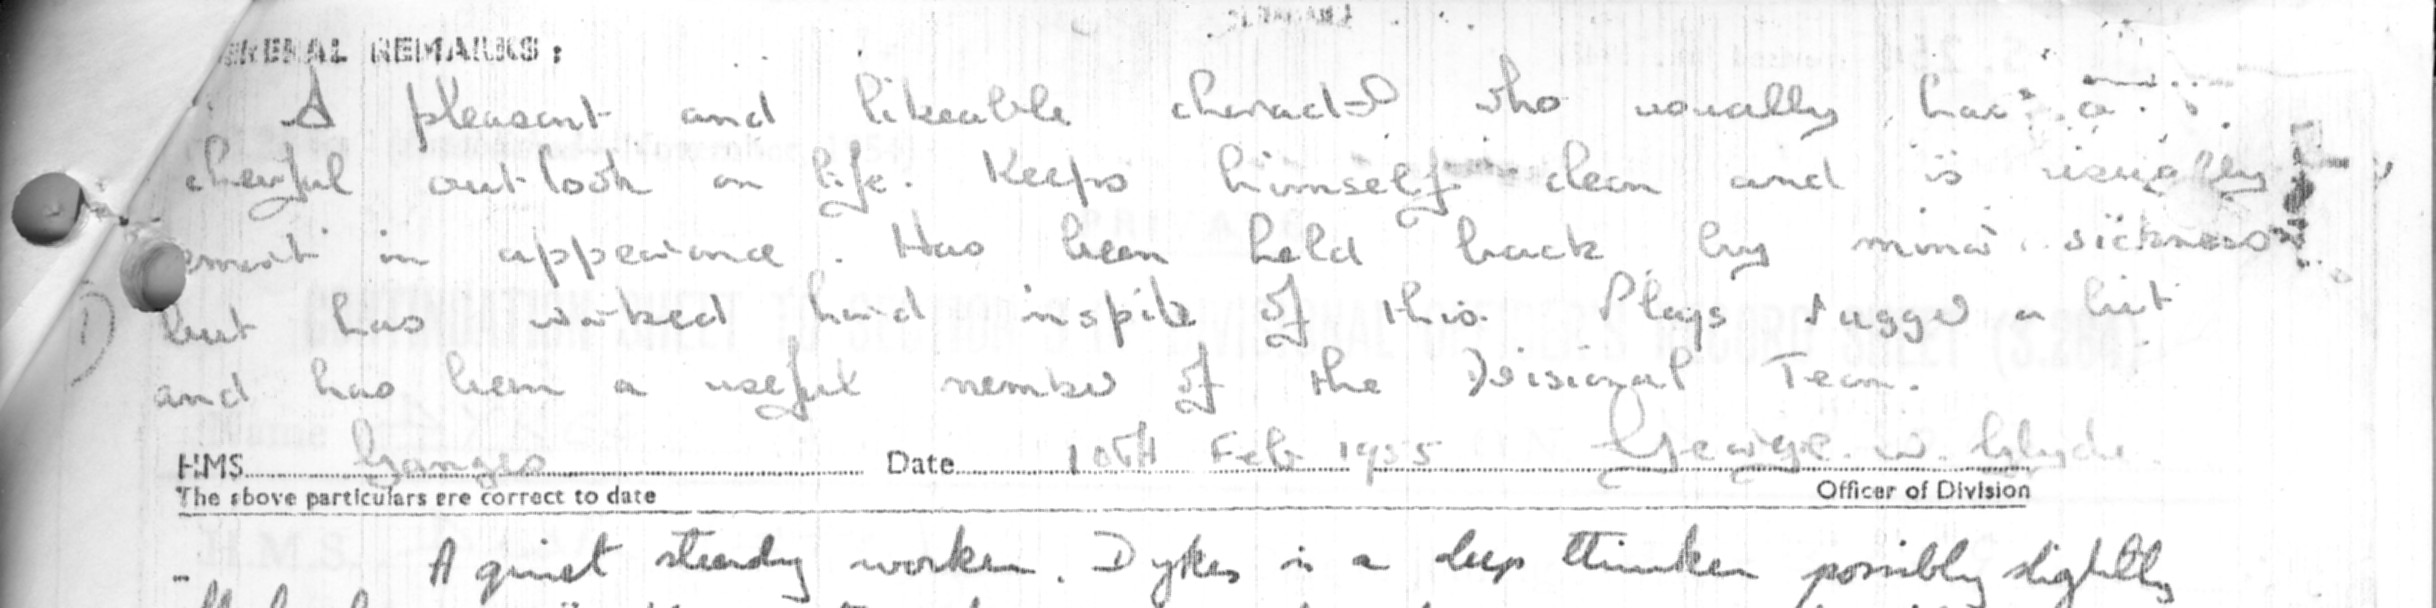 GENERAL REMARKS:
A pleasant and likeable character who usually has a
cheerful outlook on life. Keeps himself clean and is usually
smart in appearance. Has been held back by minor sickness
but has worked hard inspite of this. Plays rugger a bit
and has been a useful member of the Divisional Team.
HMS Ganges Date 10th Feb 1955 George. W. Glyde
The above particulars are correct to date Officer of Division
A quiet steady worker. Dykes is a deep thinker possibly slightly